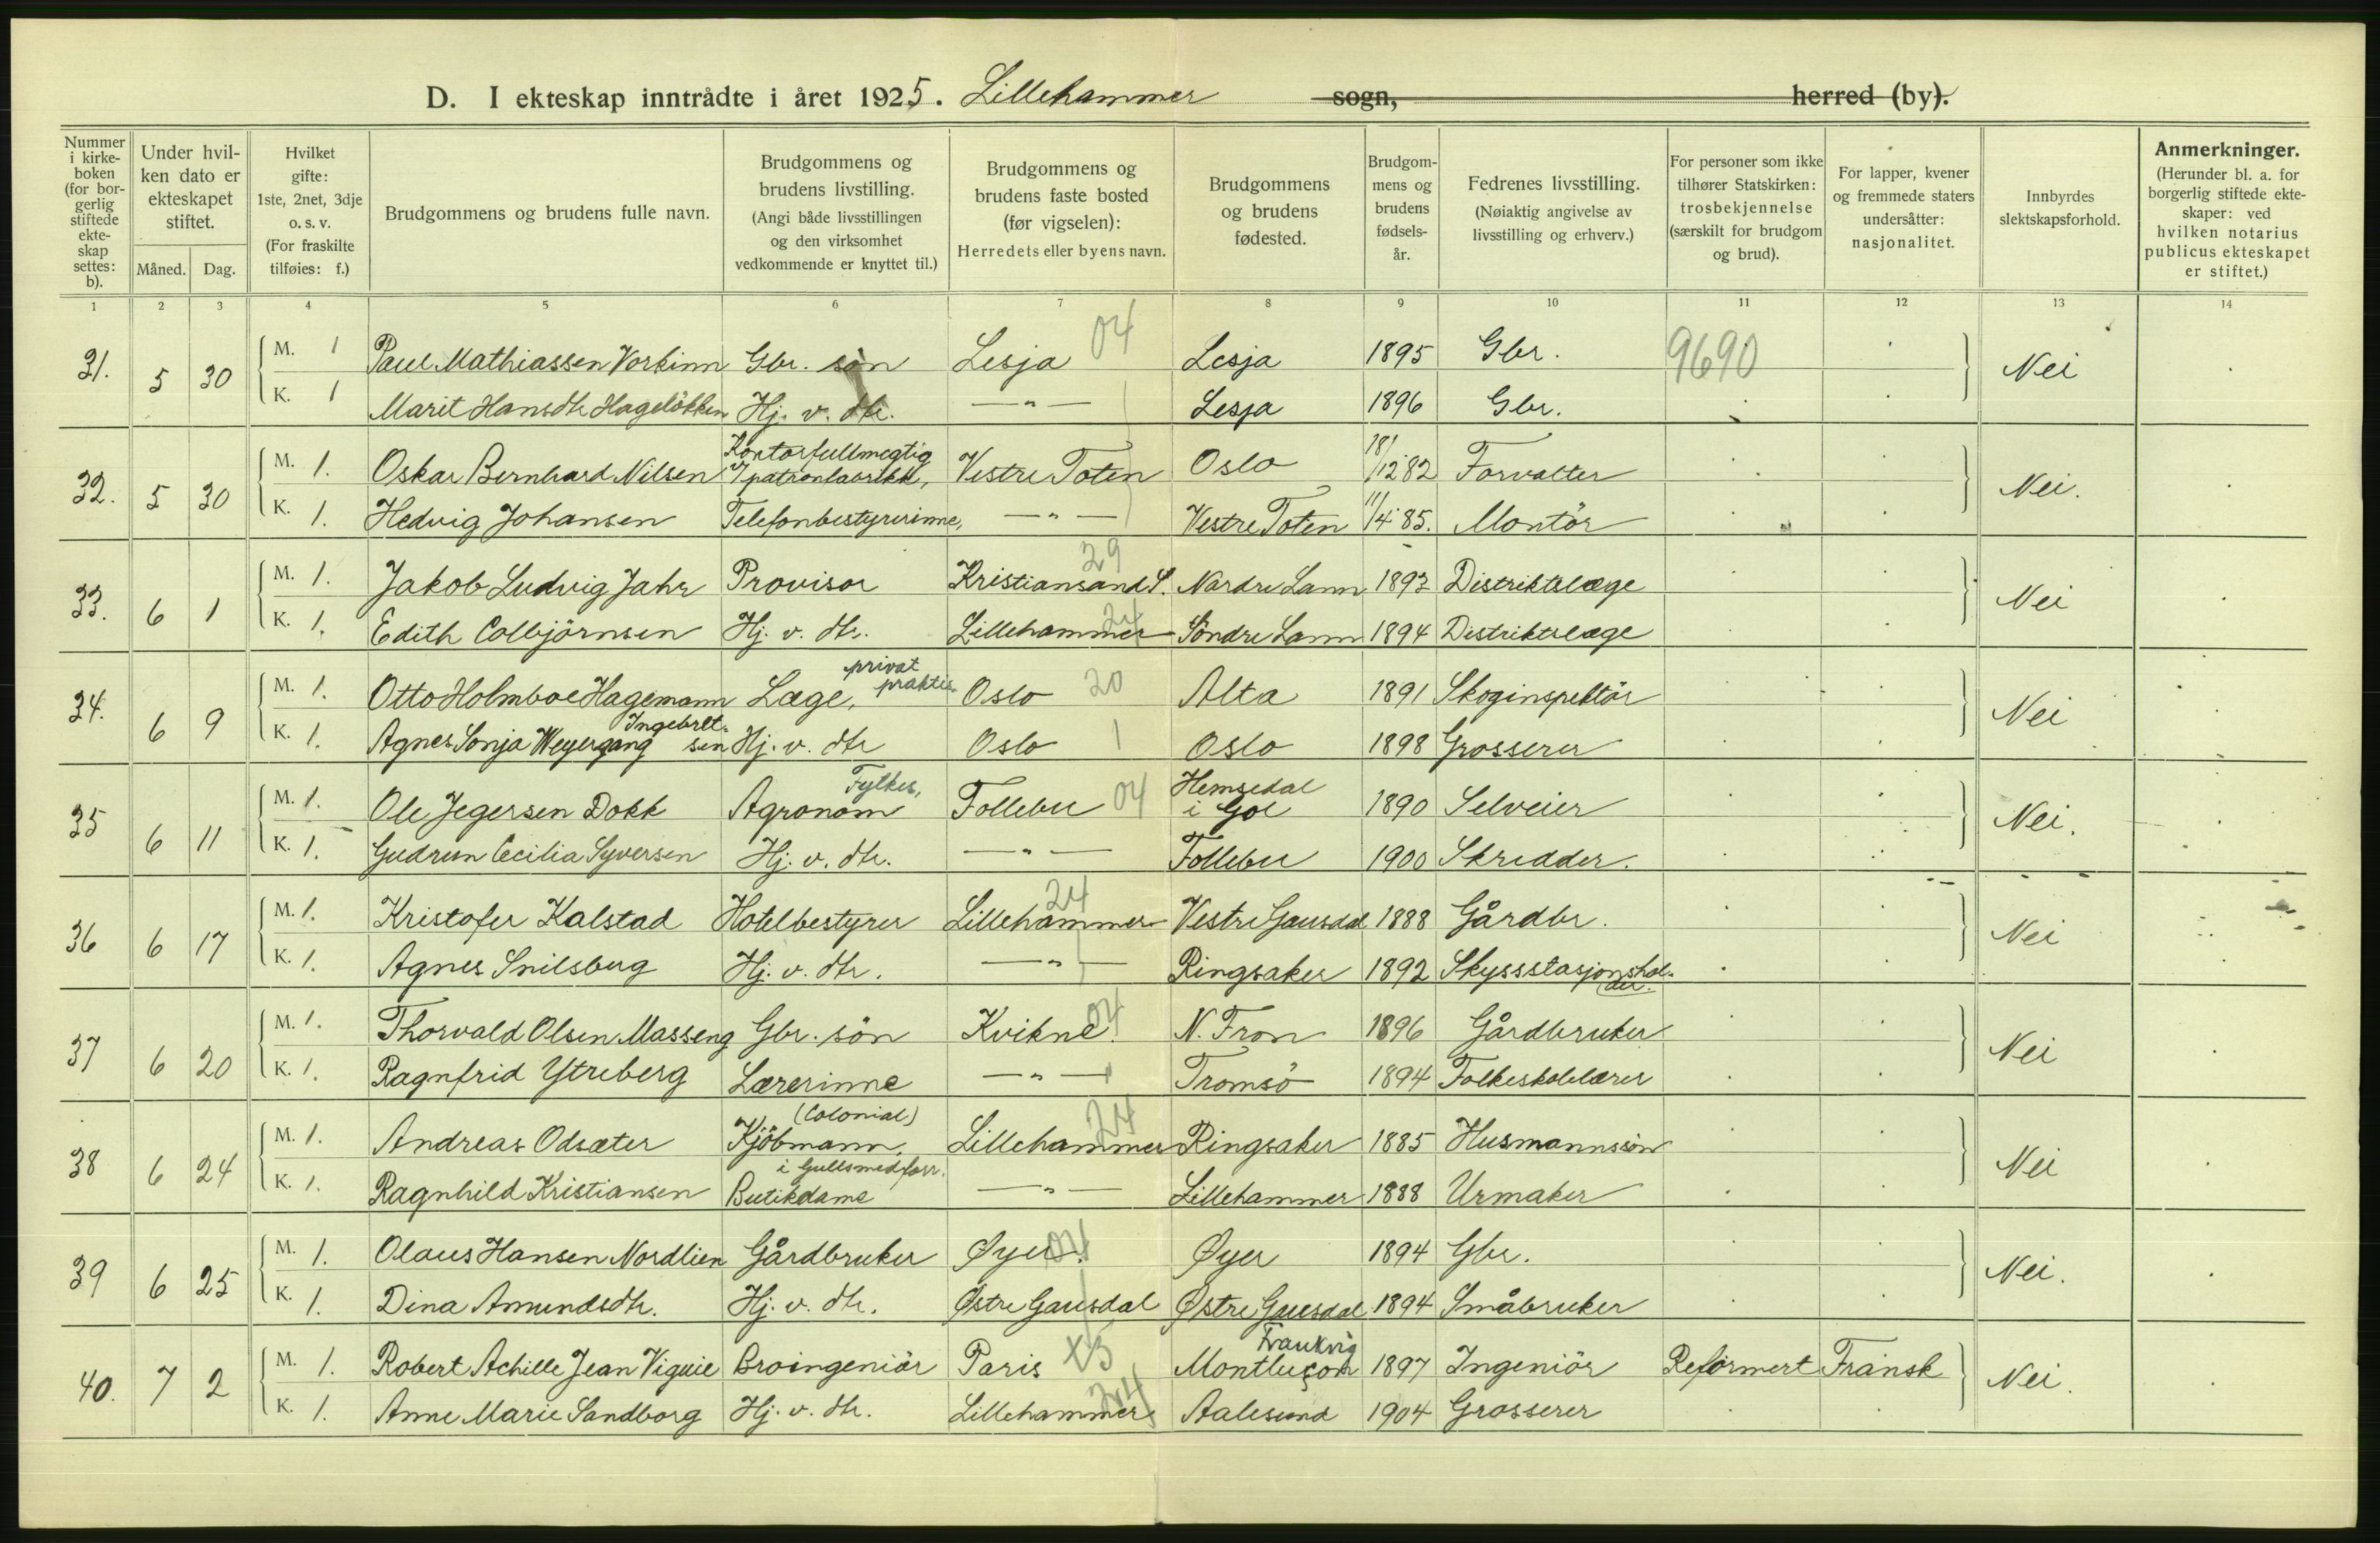 D. I ekteskap inntrådte i året 1925. Lillehammer sogn, herred (by).
Nummer i kirkeboken (for borgerlig stiftede ekteskap settes: b).
Under hvilken dato er ekteskapet stiftet.
Måned. Dag.
Hvilket gifte: 1ste, 2net, 3dje o. s. v. (For fraskilte tilføies: f.)
Brudgommens og brudens fulle navn.
Brudgommens og brudens livstilling. (Angi både livsstillingen og den virksomhet vedkommende er knyttet til.)
Brudgommens og brudens faste bosted (før vigselen): Herredets eller byens navn.
Brudgommens og brudens fødested.
Brudgommens og brudens fødselsår.
Fedrenes livsstilling. (Nøiaktig angivelse av livsstilling og erhverv.)
For personer som ikke tilhører Statskirken: trosbekjennelse (særskilt for brudgom og brud).
For lapper, kvener og fremmede staters undersåtter: nasjonalitet.
Innbyrdes slektskapsforhold.
Anmerkninger. (Herunder bl. a. for borgerlig stiftede ekteskaper: ved hvilken notarius publicus ekteskapet er stiftet.)
1 2 3 4 5 6 7 8 9 10 11 12 13 14
31. 5 30 M. 1 Paul Mathiassen Vorkinn Gbr. søn Lesja 04 Lesja 1895 Gbr. 9690 Nei
K. 1 Marit Hansdtr Hageløkken Hj. v. dtr. —"— Lesja 1896 Gbr.
32. 5 30 M. 1. Oskar Bernhard Nilsen Kontorfullmegtig v/ patronfabrikk, Vestre Toten Oslo 18/12 82 Forvalter Nei.
K. 1. Hedvig Johansen Telefonbestyrerinne, —"— Vestre Toten 11/4 85. Montör
33. 6 1 M. 1. Jakob Ludvig Jahr Provisor Kristiansand S. 29 Nordre Lann 1893 Distriktslæge Nei
K. 1. Edith Colbjörnsen Hj. v. dtr. Lillehammer 24 Söndre Lann 1894 Distriktslæge
34. 6 9 M. 1. Otto Holmboe Hagemann Læge, privat praktis. Oslo 20 Alta 1891 Skoginspektör Nei
K. 1. Agnes Sonja Weyergang Ingebretsen Hj. v. dtr Oslo Oslo 1898 Grosserer
35 6 11 M. 1. Ole Jegersen Dokk Fylkes, Agronom Follebu 04 Hemsedal i Gol 1890 Selveier Nei.
K. 1. Gudrun Cecilia Syversen Hj. v. dtr. —"— Follebu 1900 Skredder.
36 6 17 M. 1. Kristofer Kalstad Hotelbestyrer Lillehammer 24 Vestre Gausdal 1888 Gårdbr. Nei
K. 1. Agnes Snilsberg Hj. v. dtr. —"— Ringsaker 1892 Skyssstasjonsholder.
37 6 20 M. 1. Thorvald Olsen Masseng Gbr. sön Kvikne. 04 N. Fron 1896 Gårdbruker Nei
K. 1. Ragnfrid Ytreberg Lærerinne —"— Tromsö 1894 Folkeskolelærer
38 6 24 M. 1. Andreas Odsæter (Colonial) Kjöbmann, Lillehammer 24 Ringsaker 1885 Husmannssön Nei
K. 1. Ragnhild Kristiansen i Gullsmedforr. Butikdame —"— Lillehammer 1888 Urmaker
39 6 25 M. 1. Olaus Hansen Nordlien Gårdbruker Øyer. 04 Øyer 1894 Gbr. Nei.
K. 1. Dina Amundsdtr. Hj. v. dtr. Østre Gausdal Østre Gausdal 1894 Småbruker
40. 7 2 M. 1. Robert Achille Jean Viguie Broingeniör Paris x5 Montluçon Frankrig 1897 Ingeniör Reformert Fransk Nei.
K. 1. Anne Marie Sandborg Hj. v. dtr. Lillehammer 24 Aalesund 1904 Grosserer